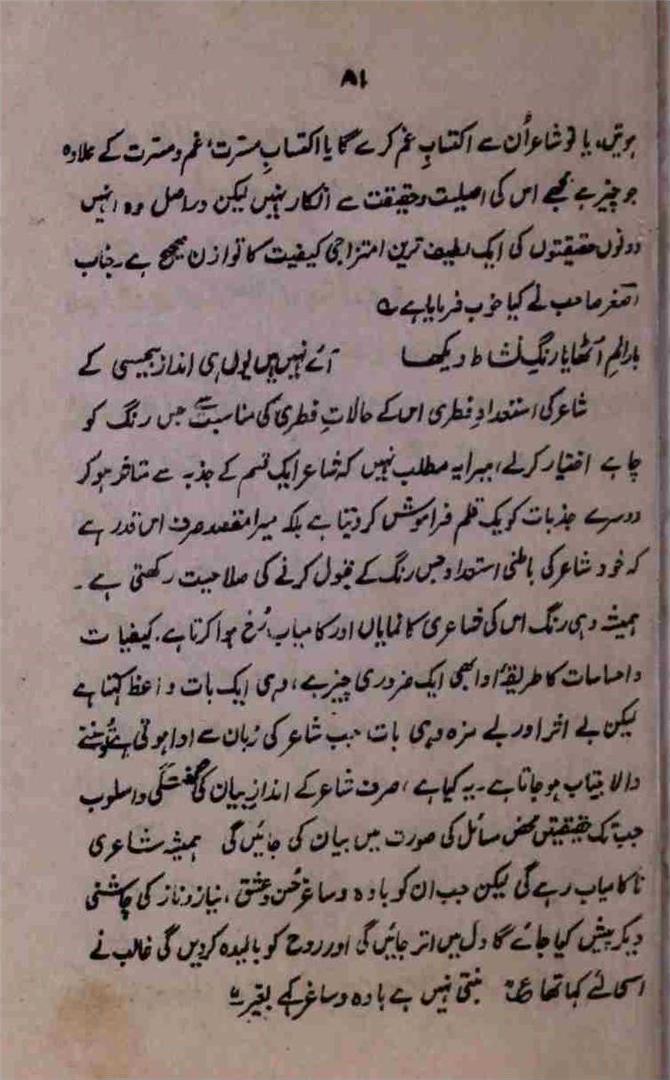 ۸۱
ہوتیں، یا تو شاعر اُن سے اکتسابِ غم کرے گا یا اکتسابِ مسرت، غم و مسرت کے علاوہ
جو چیز ہے مجھے اس کی اصلیت و حقیقت سے انکار نہیں لیکن دراصل وہ انہیں
دونوں حقیقتوں کی ایک لطیف ترین امتزاجی کیفیت کا توازن صحیح ہے۔ جناب
اصغر صاحب نے کیا خوب فرمایا ہے ؎
بارِ الم اُٹھایا رنگِ نشاط دیکھا آئے نہیں ہیں یوں ہی انداز بیحسی کے
شاعر کی استعدادِ فطری اس کے حالاتِ فطری کی مناسبت سے جس رنگ کو
چاہے اختیار کرلے، میرا یہ مطلب نہیں کہ شاعر ایک قسم کے جذبہ سے متاثر ہو کر
دوسرے جذبات کو یک قلم فراموش کر دیتا ہے بلکہ میرا مقصد صرف اس قدر ہے
کہ خود شاعر کی باطنی استعداد جس رنگ کے قبول کرنے کی صلاحیت رکھتی ہے۔
ہمیشہ وہی رنگ اس کی شاعری کا نمایاں اور کامیاب رُخ ہوا کرتا ہے۔ کیفیات
و احساسات کا طریقۂ ادا بھی ایک ضروری چیز ہے، وہی ایک بات واعظ کہتا ہے
لیکن بے اثر اور بے مزہ وہی بات جب شاعر کی زبان سے ادا ہوتی ہے تو سننے
والا بیتاب ہو جاتا ہے۔ یہ کیا ہے، صرف شاعر کے اندازِ بیان کی شگفتگی و اسلوب
جب تک حقیقتیں محض مسائل کی صورت میں بیان کی جائیں گی ہمیشہ شاعری
ناکامیاب رہے گی لیکن جب ان کو بادہ و ساغر حُسن و عشق، نیاز و ناز کی چاشنی
دیکر پیش کیا جائے گا دل میں اتر جائیں گی اور روح کو بالیدہ کردیں گی غالب نے
اسی لئے کہا تھا ع بنتی نہیں ہے بادہ و ساغر کہے بغیر